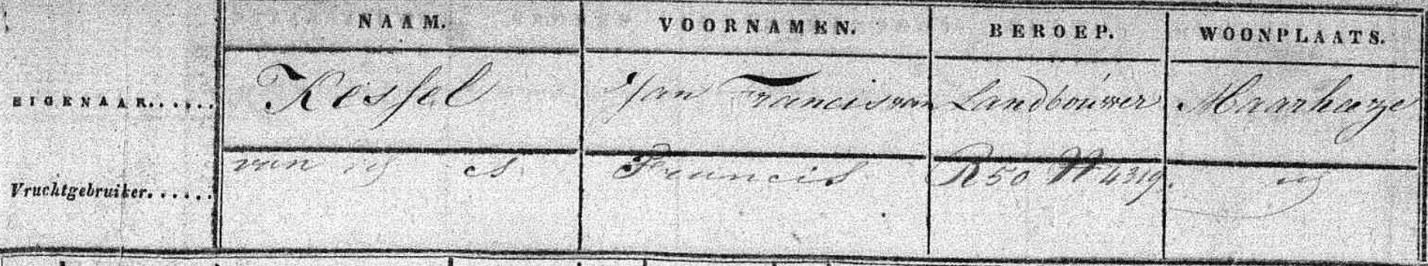 NAAM. VOORNAMEN. BEROEP. WOONPLAATS.
EIGENAAR...... Kessel Jan Francis van Landbouwer Maarheeze
Vruchtgebruiker...... van Francis R 50 N 4319.